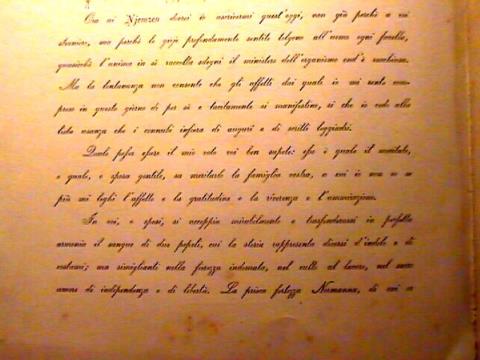 Ora ai Njenzen dirsi io scriverei quest'oggi, non già perchè a voi
straniero, ma perchè le gioje profondamente sentite tolgono all'uomo ogni favella,
quasichè l'anima in sè raccolta sdegni il ministero dell'organismo ond'è racchiusa.
Ma la lontananza non consente che gli affetti dai quali io mi sento com-
preso in questo giorno di per sè e tacitamente si manifestino, sì che io cedo alla
lieta usanza che i connubi infiora di auguri e di scritti leggiadri.
Quale possa essere il mio voto voi ben sapete: esso è quale il meritate,
e quale, o sposa gentile, sa meritarlo la famiglia vostra, a cui io non so se
più mi leghi l'affetto o la gratitudine o la riverenza e l'ammirazione.
In voi, o sposi, si accoppia mirabilmente e trasfonderassi in perfetta
armonia il sangue di due popoli, cui la storia rappresenta diversi d'indole e di
costumi; ma simiglianti nella fierezza indomata, nel culto al lavoro, nel sacro
amore di indipendenza e di libertà. La prisca fortezza Normanna, di cui a